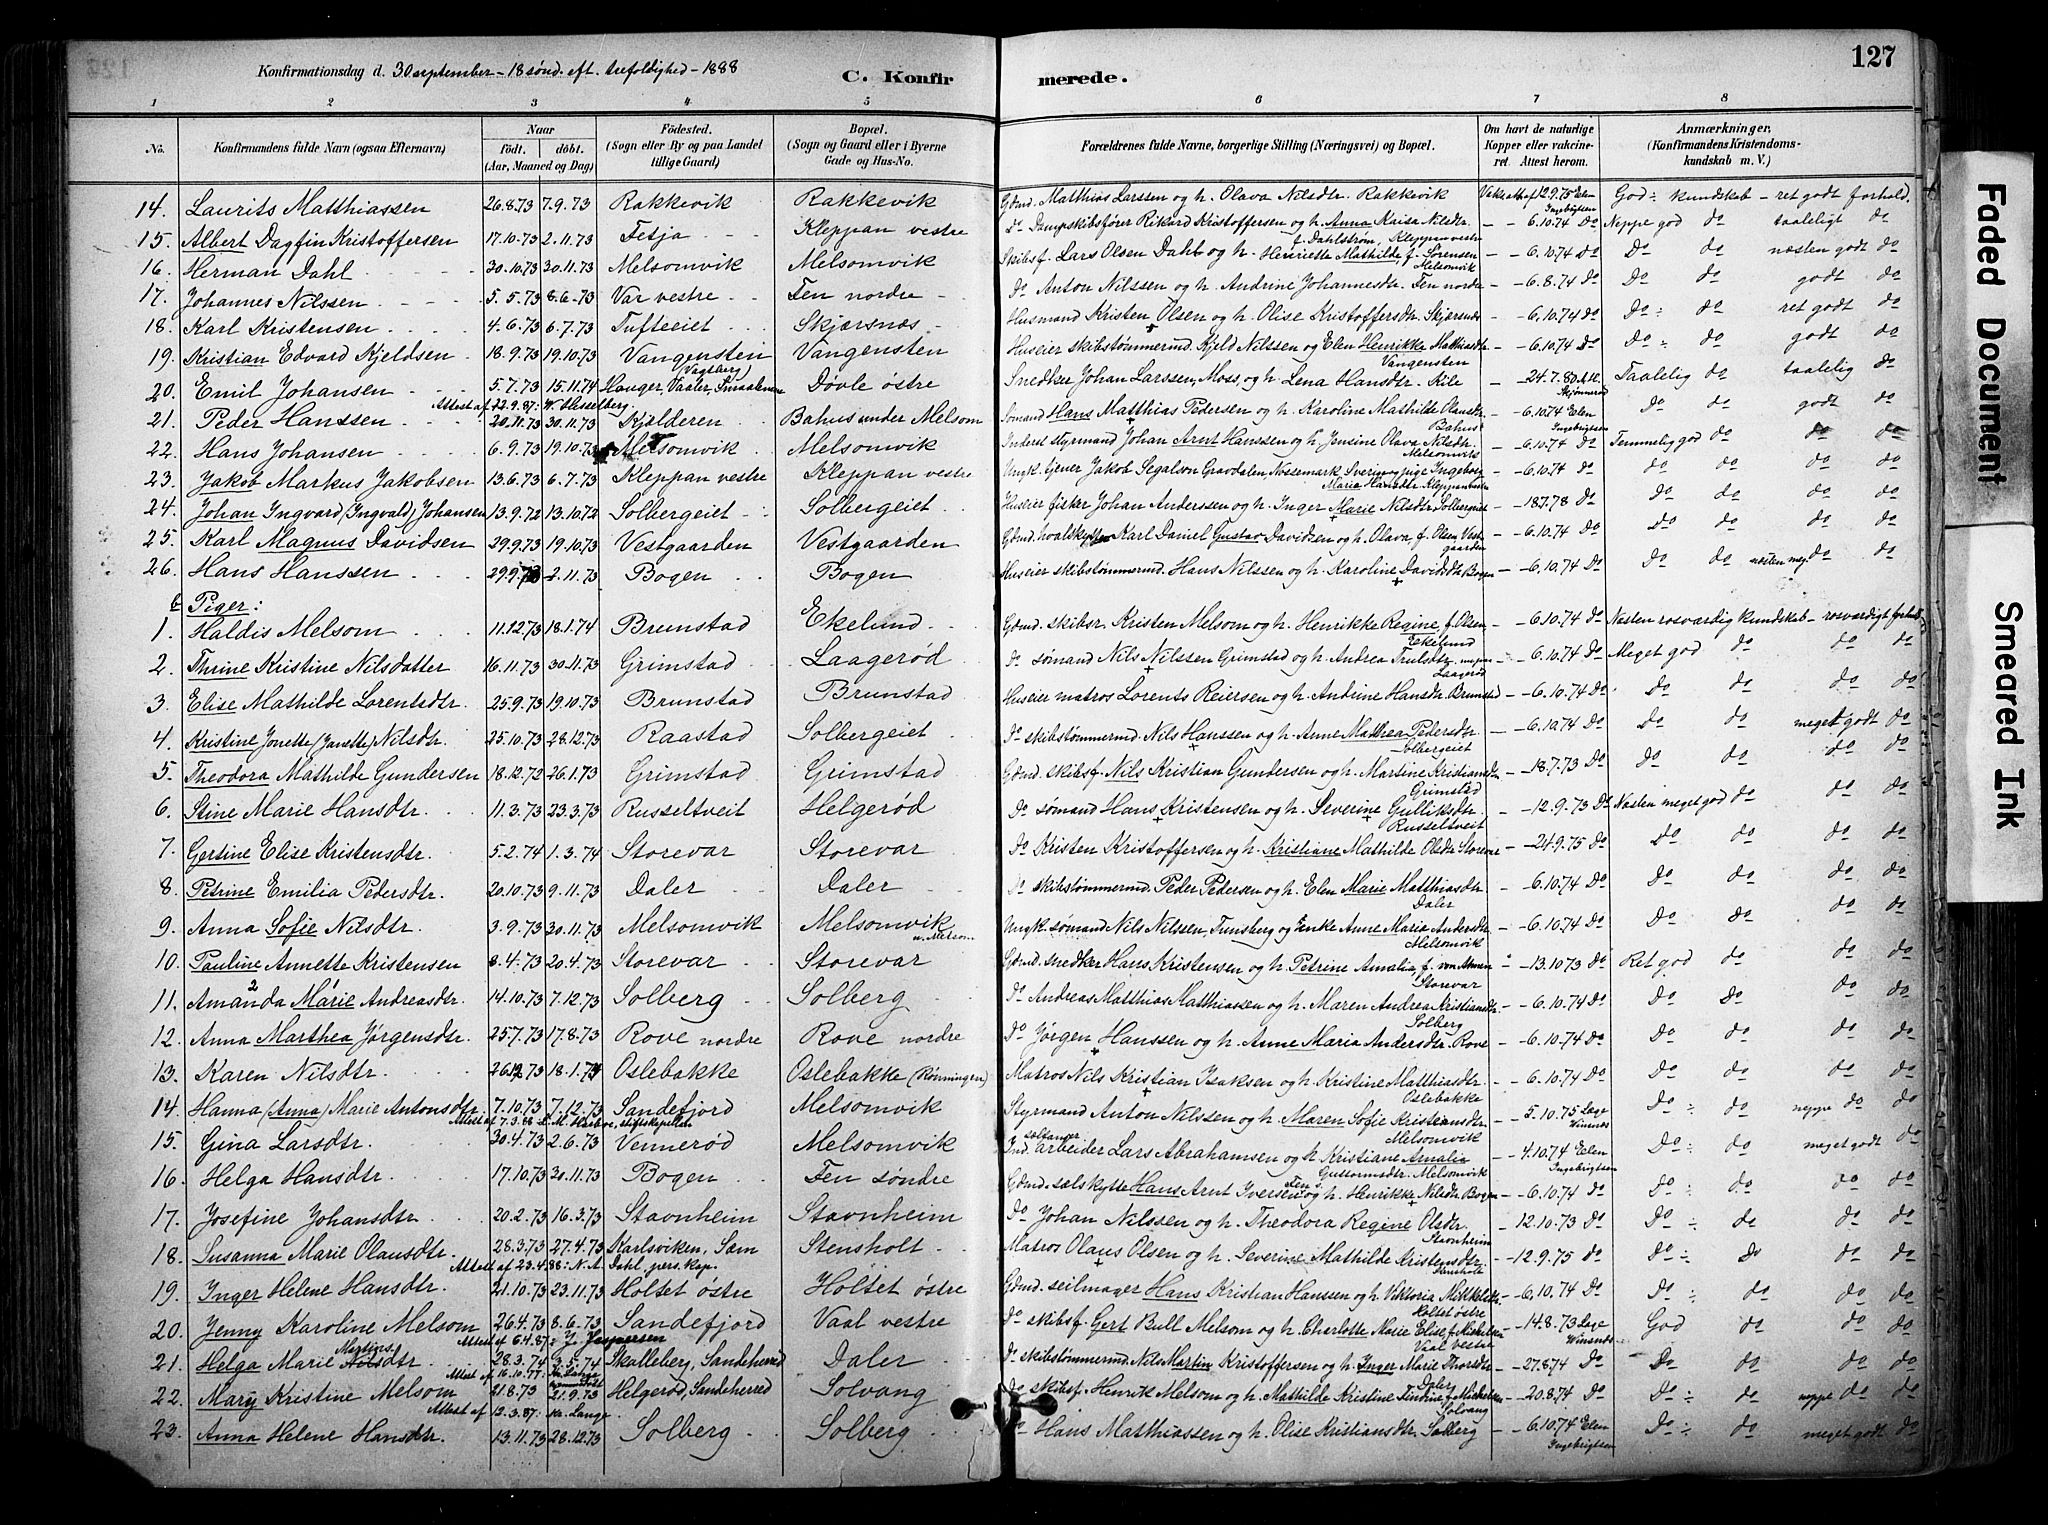 127
Konfirmationsdag d. 30 september - 18 sönd. eft. trefoldighed - 1888
C. Konfir merede.
1 2 3 4 5 6 7 8
No. Konfirmandens fulde Navn (ogsaa Efternavn) Naar født. døbt. (Aar, Maaned og Dag) Fødested. (Sogn eller By og paa Landet tillige Gaard) Bopæl. (Sogn og Gaard eller i Byerne Gade og Hus-No. Forældrenes fulde Navne, borgerlige Stilling (Næringsvei) og Bopæl. Om havt de naturlige Kopper eller vakcineret. Attest herom. Anmærkninger. (Konfirmandens Kristendomskundskab m. V.)
14. Laurits Matthiassen 26.8.73 7.9.73 Rakkevik Rakkevik Gdmd. Matthias Larssen og h. Olava Nilsdtr. Rakkevik Vak. att. af 12.9.75 Elen Ingebrigtsen God ÷ kundskab - ret godt forhold.
15. Albert Dagfin Kristoffersen 17.10.73 2.11.73 Fetja Kleppan vestre Do Dampskibsfører Rikard Kristoffersen og h. Anna Kaisa Nilsdtr. f. Dahlstrøm, Kleppan vestre - - 6.10.74 Do Neppe god do taaleligt do
16. Herman Dahl 30.10.73 30.11.73 Melsomvik Melsomvik Skibsf. Lars Olsen Dahl og h. Henriette Mathilde, f. Sørensen Melsomvik - - 6.10.74 Do Do do næsten godt do
17. Johannes Nilssen 5.5.73 8.6.73 Var vestre Fen nordre Do Anton Nilssen og h. Andrine Johannesdtr. Fen nordre - - 6.8.74 Do Do do godt do
18. Karl Kristensen 4.6.73 6.7.73 Tufteeiet Skjærsnæs Husmand Kristen Olsen og h. Olise Kristoffersdtr. Skjersnæs - - 6.10.74 Do Do ÷ do ret godt do
19. Kristian Edvard Kjeldsen 18.9.73 19.10.73 Vangensten Vangensten Huseier skibstømmermd. Kjeld Nilssen og Elen Henrikke Mathiasdtr. Vangensten - - 6.10.74 Do Do ÷ do godt do
20. Emil Johansen 5.7.73 15.11.74 Hauger, Vaaler, Smaalenene Døvle østre Snedker Johan Larssen, Moss, og h. Lena Hansdtr. Kile - - 24.7.80 Taalelig do taalelig do
Attest af 22.9.87: W. Hesselberg.
21. Peder Hanssen 20.11.73 30.11.73 Kjælderen Bahus under Melsom Sømand Hans Matthias Pedersen og h. Karoline Mathilde Olausdtr. Bahus - - 6.10.74 Elen Ingebrigtsen Do do godt do
22. Hans Johansen 6.9.73 19.10.73 Melsomvik Melsomvik Inderst styrmand Johan Arnt Hanssen og h. Jensine Olava Nilsdtr. Melsomvik - - 6.10.74 Do Temmelig god do do do
23. Jakob Markus Jakobsen 13.6.73 6.7.73 Kleppan vestre Kleppan vestre Ungk. tjener Jakob Segalson Gravdalen, og pige Ingeborg Maria Hansdtr. Kleppan - - 6.10.74 do do do do do
24. Johan Ingvard (Ingvald) Johansen 13.9.72 13.10.72 Solbergeiet Solbergeiet Huseier fisker Johan Anderssen og h. Inger Marie Nilsdtr. Solbergeiet - - 18.7.78 Do Do do do do
25. Karl Magnus Davidsen 29.9.73 19.10.73 Vestgaarden Vestgaarden Gdmd. hvalskytter Karl Daniel Gustav Davidsen og h. Olava, f. Olsen Vestgaarden - - 6.10.74 Do Do do do do
26. Hans Hanssen 29.9.73 2.11.73 Bogen Bogen Huseier skibstømmermd. Hans Nilssen og h. Karoline Davidsdtr. Bogen - - 6.10.74 Do Do do næsten meg. do do
b Piger:
1. Haldis Melsom 11.12.73 18.1.74 Brunstad Ekelund Gdmd. skibsr. Kristen Melsom og h. Henrikke Regine, f. Olsen Eekelund - - 6.10.74 Do Næsten rosværdig kundskab - rosværdigt forhold
2. Thrine Kristine Nilsdatter 16.11.73 30.11.73 Grimstad Laagerød Do sømand Nils Nilssen Grimstad og h. Andrea Trulsdtr. Laagerød - - 6.10.74 Do Meget god do do do
3. Elise Mathilde Lorentsdtr. 25.9.73 19.10.73 Brunstad Brunstad Huseier matros Lorents Reiersen og h. Andrine Hansdtr. Brunstad - - 6.10.74 Do Do do do do
4. Kristine Jonette (Janette) Nilsdtr. 25.10.73 28.12.73 Raastad Solbergeiet Do skibstømmermd. Nils Hanssen og h. Anne Matthea Pedersdtr. Solbergeiet - - 6.10.74 Do Do do meget godt do
5. Theodora Mathilde Gundersen 18.12.72 26.1.73 Grimstad Grimstad Gdmd. skibsf. Nils Kristian Gundersen og h. Martine Kristiansdtr. Grimstad - - 18.7.73 Do Do do do do
6. Stine Marie Hansdtr. 11.3.73 23.3.73 Russeltveit Helgerød Do sømand Hans Kristensen og h. Severine Gulliksdtr. Russeltveit - - 12.9.73 Do Næsten meget god do do do
7. Gertine Elise Kristensdtr. 5.2.74 1.3.74 Storevar Storevar Do Kristen Kristoffersen og h. Kristiane Mathilde Olsdtr. Storevar - - 24.9.75 Do Do do do do
8. Petrine Emilia Pedersdtr. 20.10.73 9.11.73 Daler Daler Do skibstømmermd. Peder Pedersen og h. Elen Marie Matthiasdtr. Daler - - 6.10.74 Do Do do do do
9. Anna Sofie Nilsdtr. 3.9.73 30.11.73 Melsomvik Melsomvik u. Melsom Ungk. sømand Nils Nilssen, Tunsberg og Enke Anne Marie Andersdtr. Melsomvik - - 6.10.74 Do Do do do do
10. Pauline Annette Kristensen 8.4.73 20.4.73 Storevar Storevar Gdmd. snedker Hans Kristensen og h. Petrine Amalia, f. von Ahnen Storevar - - 13.10.73 Do Ret god do do do
11. Amanda Marie Andreasdtr. 14.10.73 7.12.73 Solberg Solberg Do Andreas Matthias Matthiassen og h. Maren Andrea Kristiansdtr. Solberg - - 6.10.74 Do Do Do do do
12. Anna Marthea Jørgensdtr. 25.7.73 17.8.73 Rove nordre Rove nordre Do Jørgen Hanssen og h. Anne Maria Andersdtr. Rove - - 6.10.74 Do Do do do do
13. Karen Nilsdtr. 26.12.73 18.1.74 Oslebakke Oslebakke (Rønningen) Matros Nils Kristian Isaksen og h. Kristine Matthiasdtr. Oslebakke - - 6.10.74 Do Do do do do
14. Hanna (Anna) Marie Antonsdtr. 7.10.73 7.12.73 Sandefjord Melsomvik Styrmand Anton Nilssen og h. Maren Sofie Kristiansdtr. Melsomvik - - 5.10.75 Læge Winsnes Do ÷ do neppe do do
Attest af 7.3.88 stiftskapellan
15. Gina Larsdtr. 30.4.73 2.6.73 Vennerød Melsomvik Ind. arbeider Lars Abrahamsen og h. Kristiane Amalia Guttormsdtr. Melsomvik - - 4.10.74 Elen Ingebrigtsen Do ÷ do meget godt do
16. Helga Hansdtr. 17.10.73 20.11.73 Bogen Fen søndre Gdmd. sælskytte Hans Arnt Iversen Fen s. og h. Henrikke Nilsdtr. Bogen - - 6.10.74 Do Do ÷ do do do
17. Josefine Johansdtr. 20.2.73 16.3.73 Stavnheim Stavnheim Do Johan Nilssen og h. Theodora Regine Olsdtr. Stavnheim - 12.10.73 Do Do ÷ do do do
18. Susanna Marie Olausdtr. 28.3.73 27.4.73 Karlsviken, Sæm Stensholt Matros Olaus Olsen og h. Severine Mathilde Kristensdtr. Stensholt - - 12.9.75 Do Do ÷ do do do
Attest af 23.4.88: N. A. Dahl, pers. kap.
19. Inger Helene Hansdtr. 21.10.73 23.11.73 Holtet østre Holtet østre Gdmd. seilmager Hans Kristian Hanssen og h. Viktoria Mikkelsdtr. Holtet østre - - 6.10.74 Do Do ÷ do do do
20. Jenny Karoline Melsom 26.4.73 8.6.73 Sandefjord Vaal vestre Do skibsf. Gert Bull Melsom og h. Charlotte Marie Elise, f. Mikkelsen Vaal vestre - - 14.8.73 Læge Winsnes God do do do
Attest af 6.4.87: J. Jespersen
21. Helga Marie Nilsdtr. Martins 28.3.74 3.5.74 Skalleberg, Sandeherred Daler Do skibstømmermd. Nils Martin Kristoffersen og h. Inger Marie Thorsdtr. Daler - - 27.8.74 Do Do do do do
Attest af 16.10.77: Lange
22. Mary Kristine Melsom 21.8.73 21.9.73 Helgerød, Sandeherred Solvang Do skibsf. Henrik Melsom og h. Mathilde Kristine f. Mikkelsen Solvang - - 20.8.74 Do Do ÷ do neppe do do
Attest af 12.3.87: Lange.
23. Anna Helene Hansdtr. 13.11.73 28.12.73 Solberg Solberg Do Hans Matthiassen og h. Olise Kristiansdtr. Solberg - - 6.10.74 Elen Ingebrigtsen Do ÷ do meget godt do
Faded Document
Smeared Ink